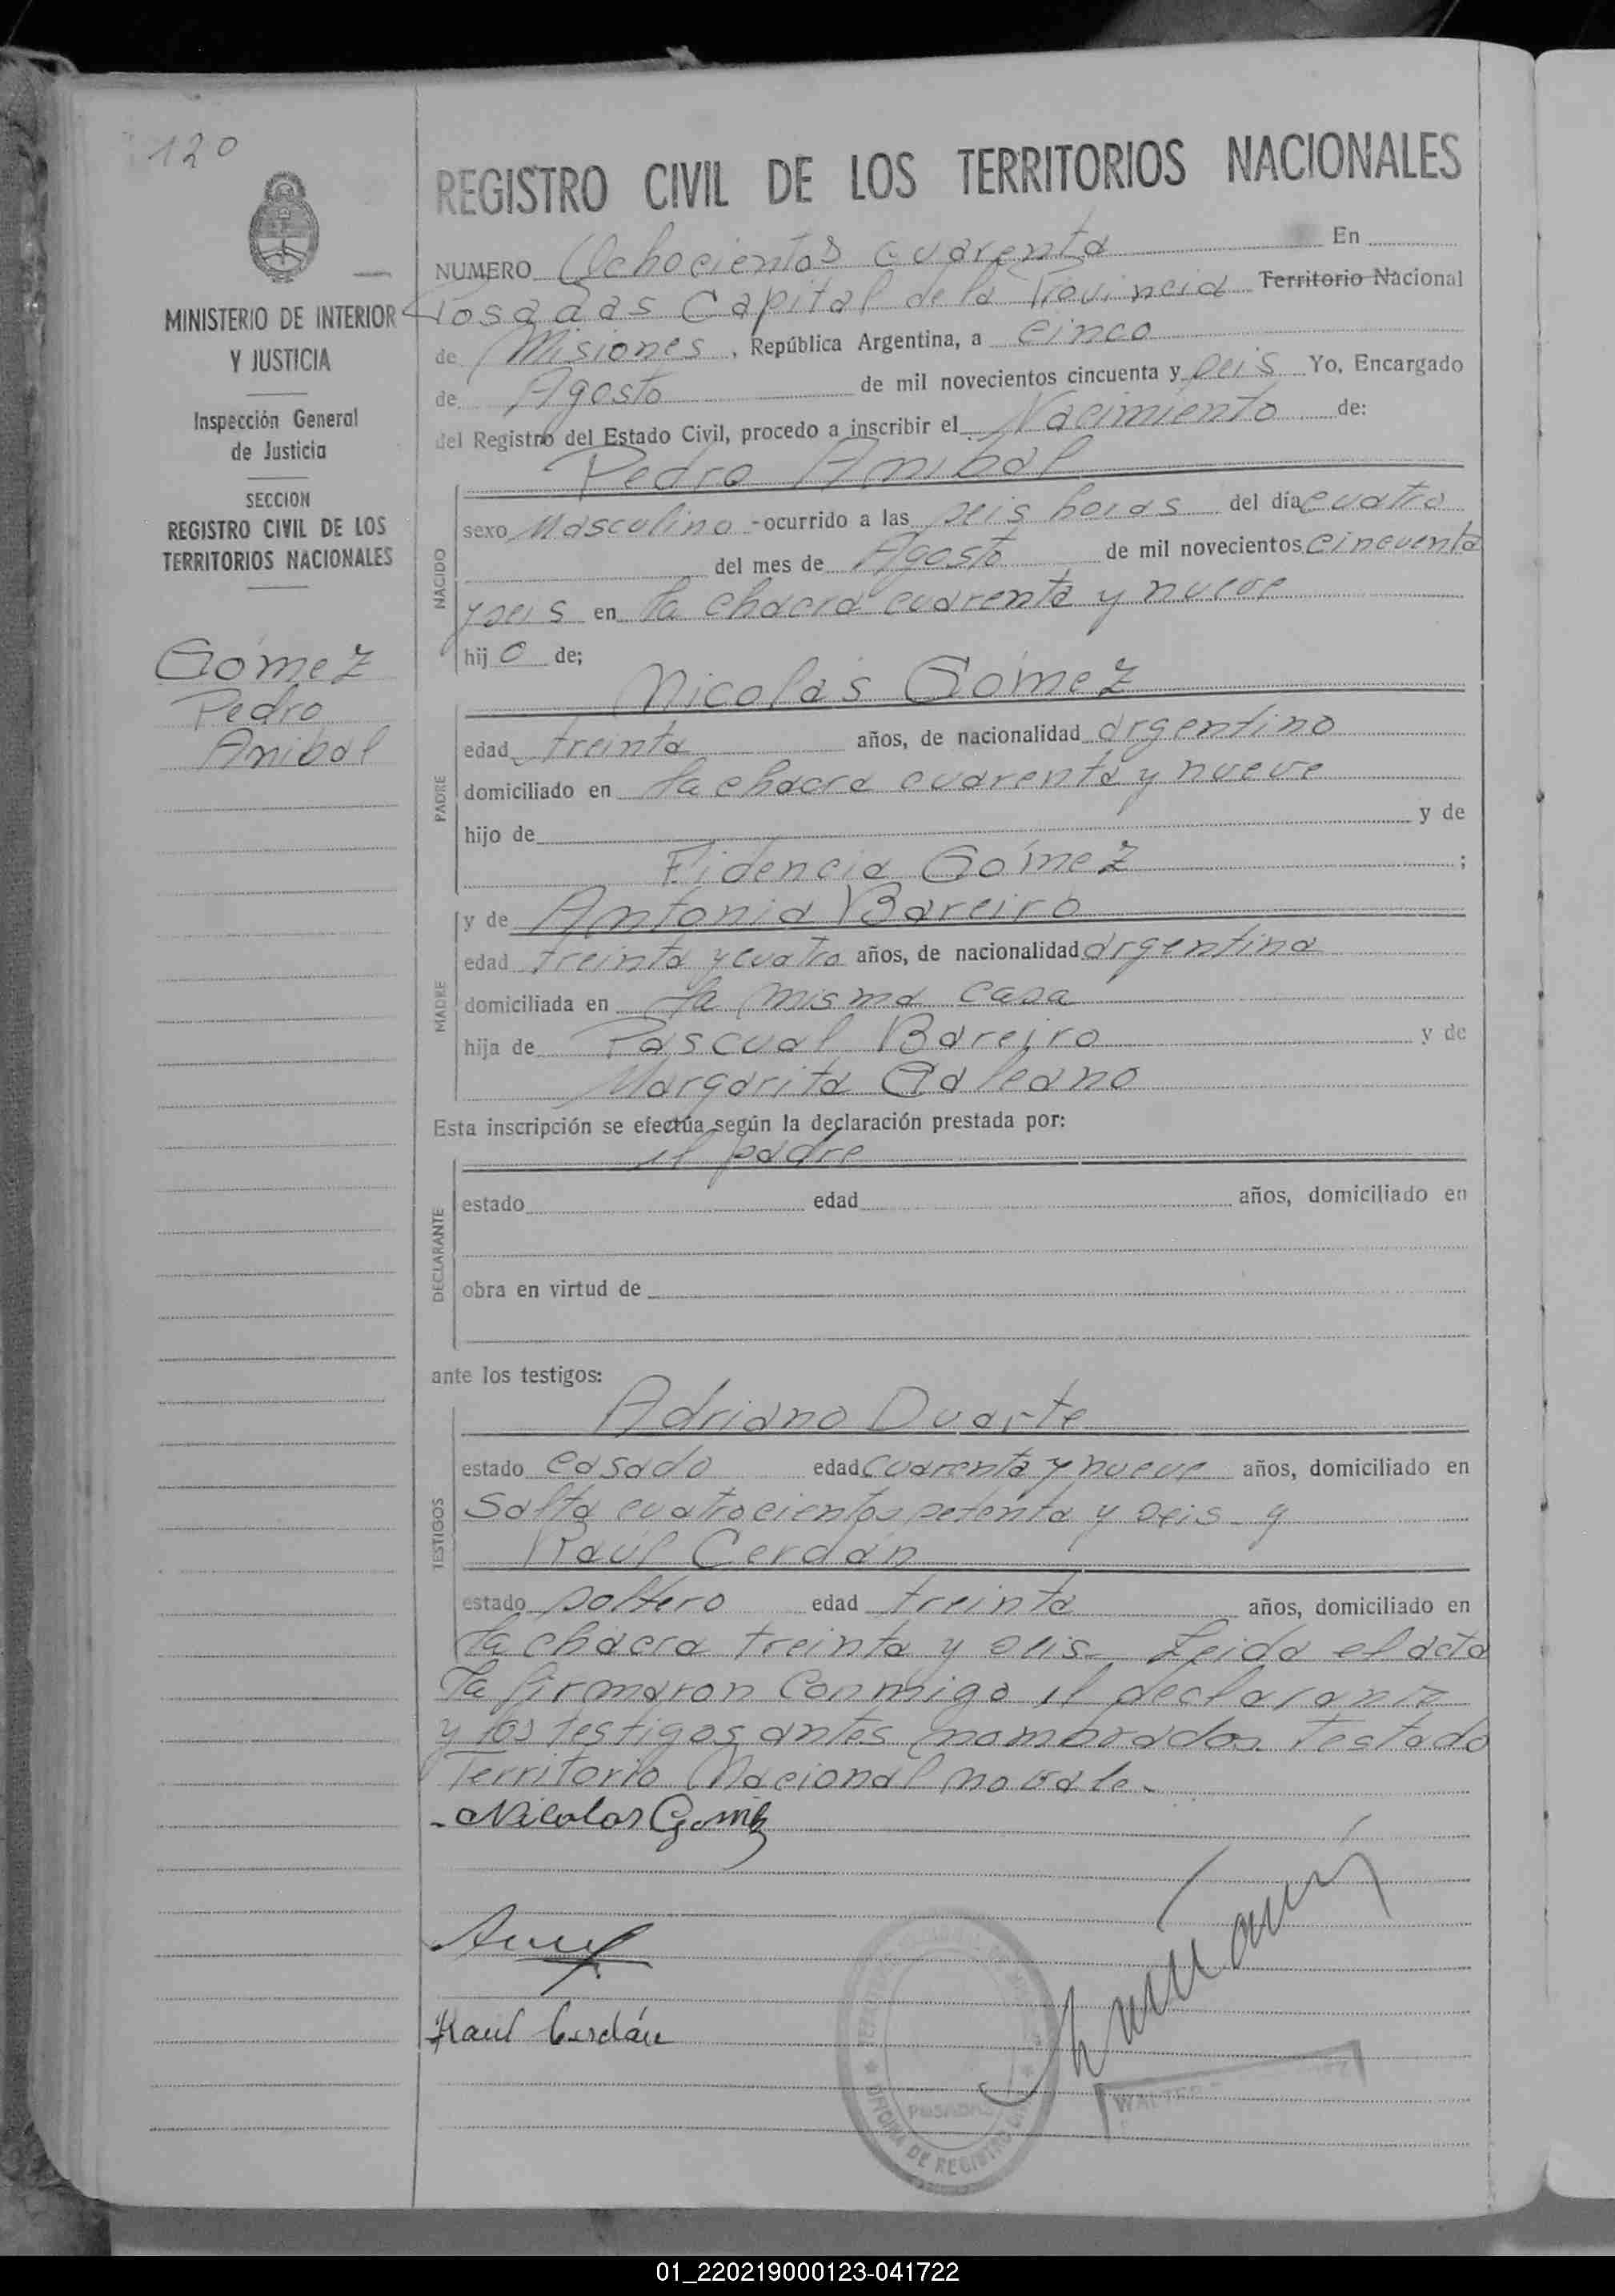 120
REGISTRO CIVIL DE LOS TERRITORIOS NACIONALES
NUMERO Ochocientos cuarenta En
Posadas Capital de la Provincia Territorio Nacional
de Misiones, República Argentina, a cinco
de Agosto de mil novecientos cincuenta y seis Yo, Encargado
del Registro del Estado Civil, procedo a inscribir el Nacimiento de:
Pedro Anibal
sexo Masculino - ocurrido a las seis horas del día cuatro
del mes de Agosto de mil novecientos cincuenta
y seis en la chacra cuarenta y nueve
hijo de;
NACIDO
Nicolás Gómez
edad treinta años, de nacionalidad argentino
domiciliado en la chacra cuarenta y nueve
hijo de y de
Fidencia Gómez ;
PADRE
y de Antonia Bareiro
edad treinta y cuatro años, de nacionalidad argentina
domiciliada en la misma casa
hija de Pascual Bareiro y de
Margarita Galeano
MADRE
Esta inscripción se efectúa según la declaración prestada por:
el padre
estado edad años, domiciliado en
obra en virtud de
DECLARANTE
ante los testigos:
Adriano Duarte
estado casado edad cuarenta y nueve años, domiciliado en
Salta cuatrocientos setenta y seis - y
Raúl Cerdán
estado soltero edad treinta años, domiciliado en
la chacra treinta y seis - Leida el acta
TESTIGOS
la firmaron conmigo el declarante
y los testigos antes nombrados Testado
Territorio Nacional no vale.
- Nicolas Gomez
Raul Cerdán
POSADAS
OFICINA DE REGISTRO
WALTER
MINISTERIO DE INTERIOR
Y JUSTICIA
Inspección General
de Justicia
SECCION
REGISTRO CIVIL DE LOS
TERRITORIOS NACIONALES
Gómez
Pedro
Anibal
01_220219000123-041722